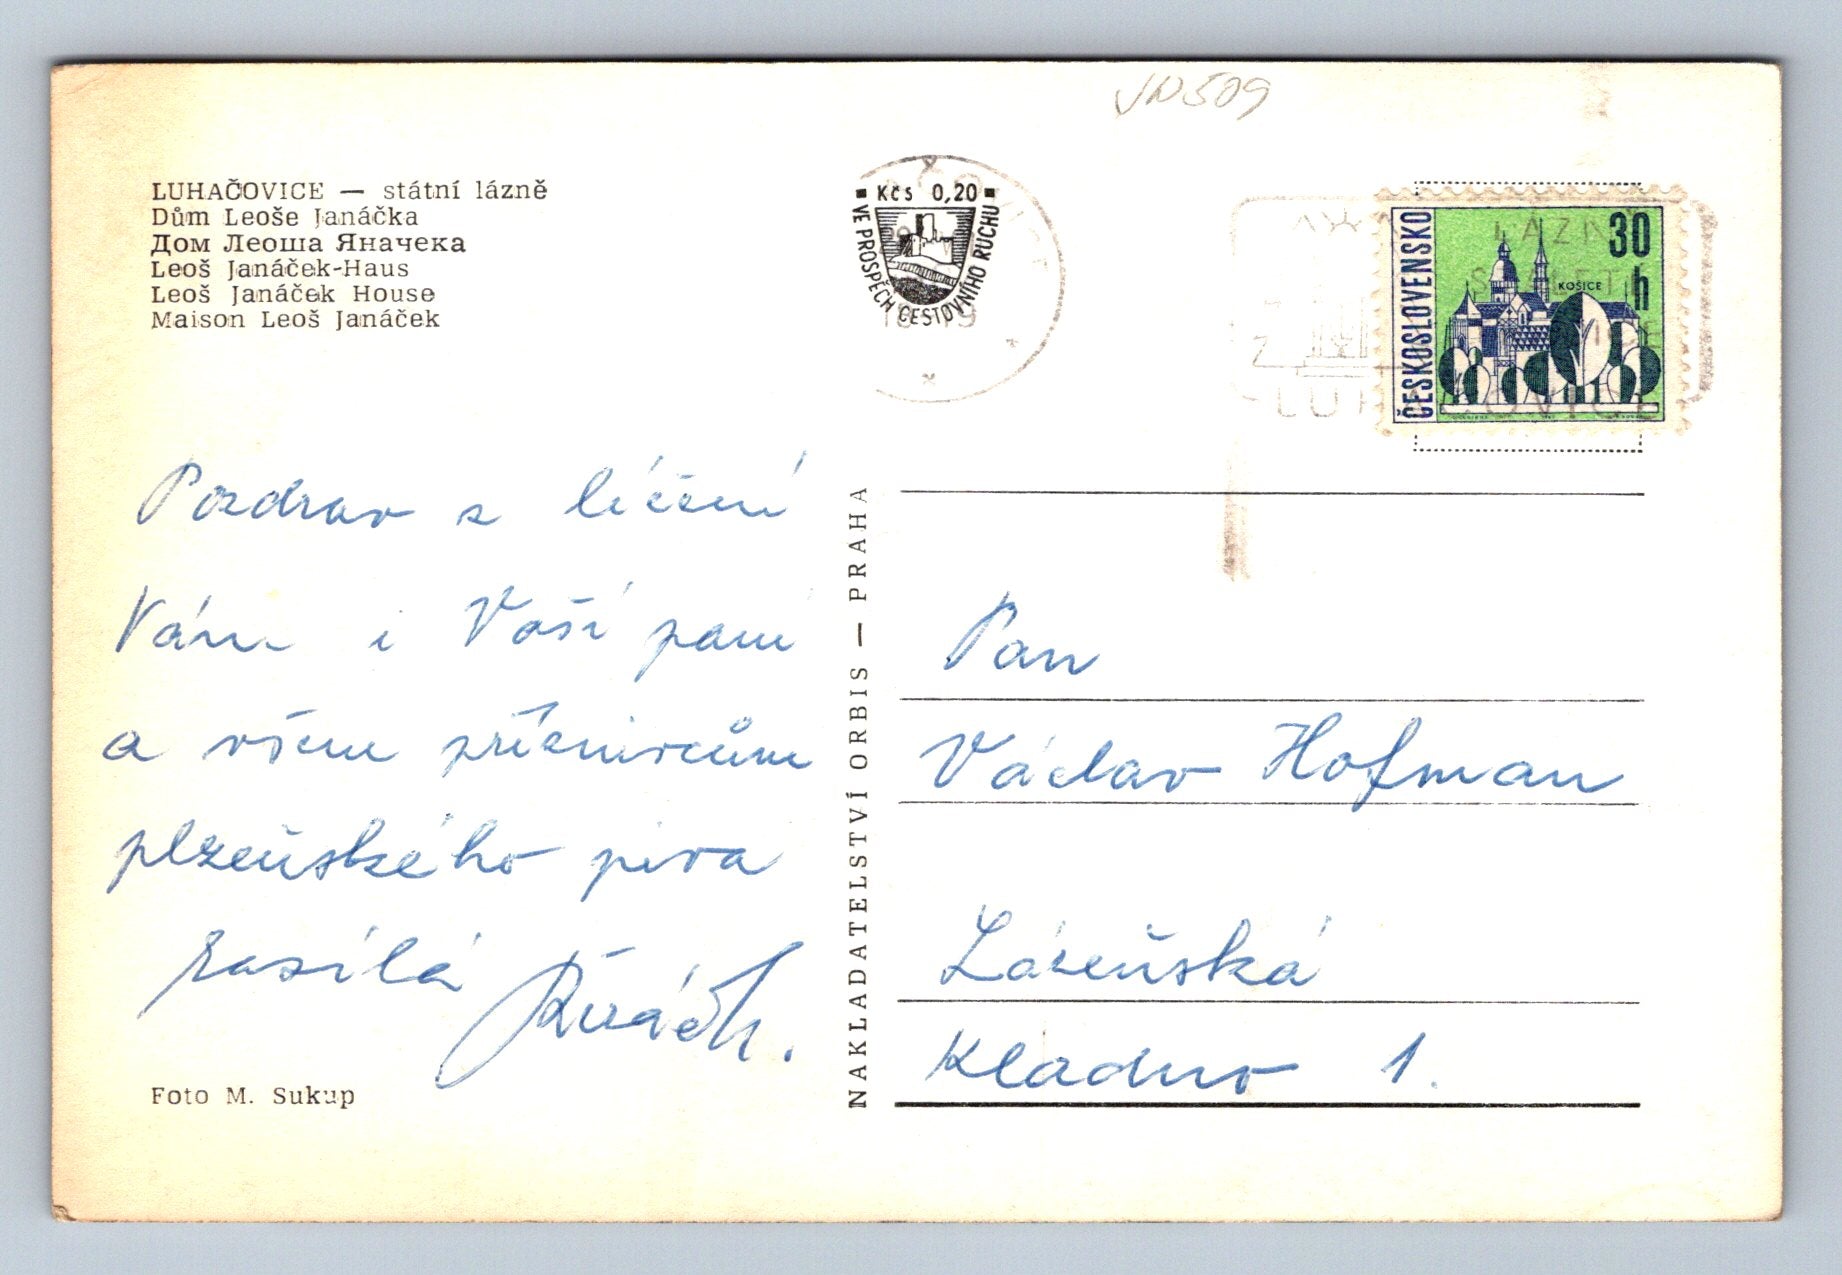 VN509
LUHAČOVICE — státní lázně
Dům Leoše Janáčka
Дом Леоша Яначека
Leoš Janáček-Haus
Leoš Janáček House
Maison Leoš Janáček
Kčs 0,20
VE PROSPĚCH CESTOVNÍHO RUCHU
ČESKOSLOVENSKO
30
h
KOŠICE
Pozdrav z léčení
Vám i Vaší paní
a všem příznivcům
plzeňského piva
zasílá
Foto M. Sukup
NAKLADATELSTVÍ ORBIS — PRAHA
Pan
Václav Hofman
Lázeňská
Kladno 1.